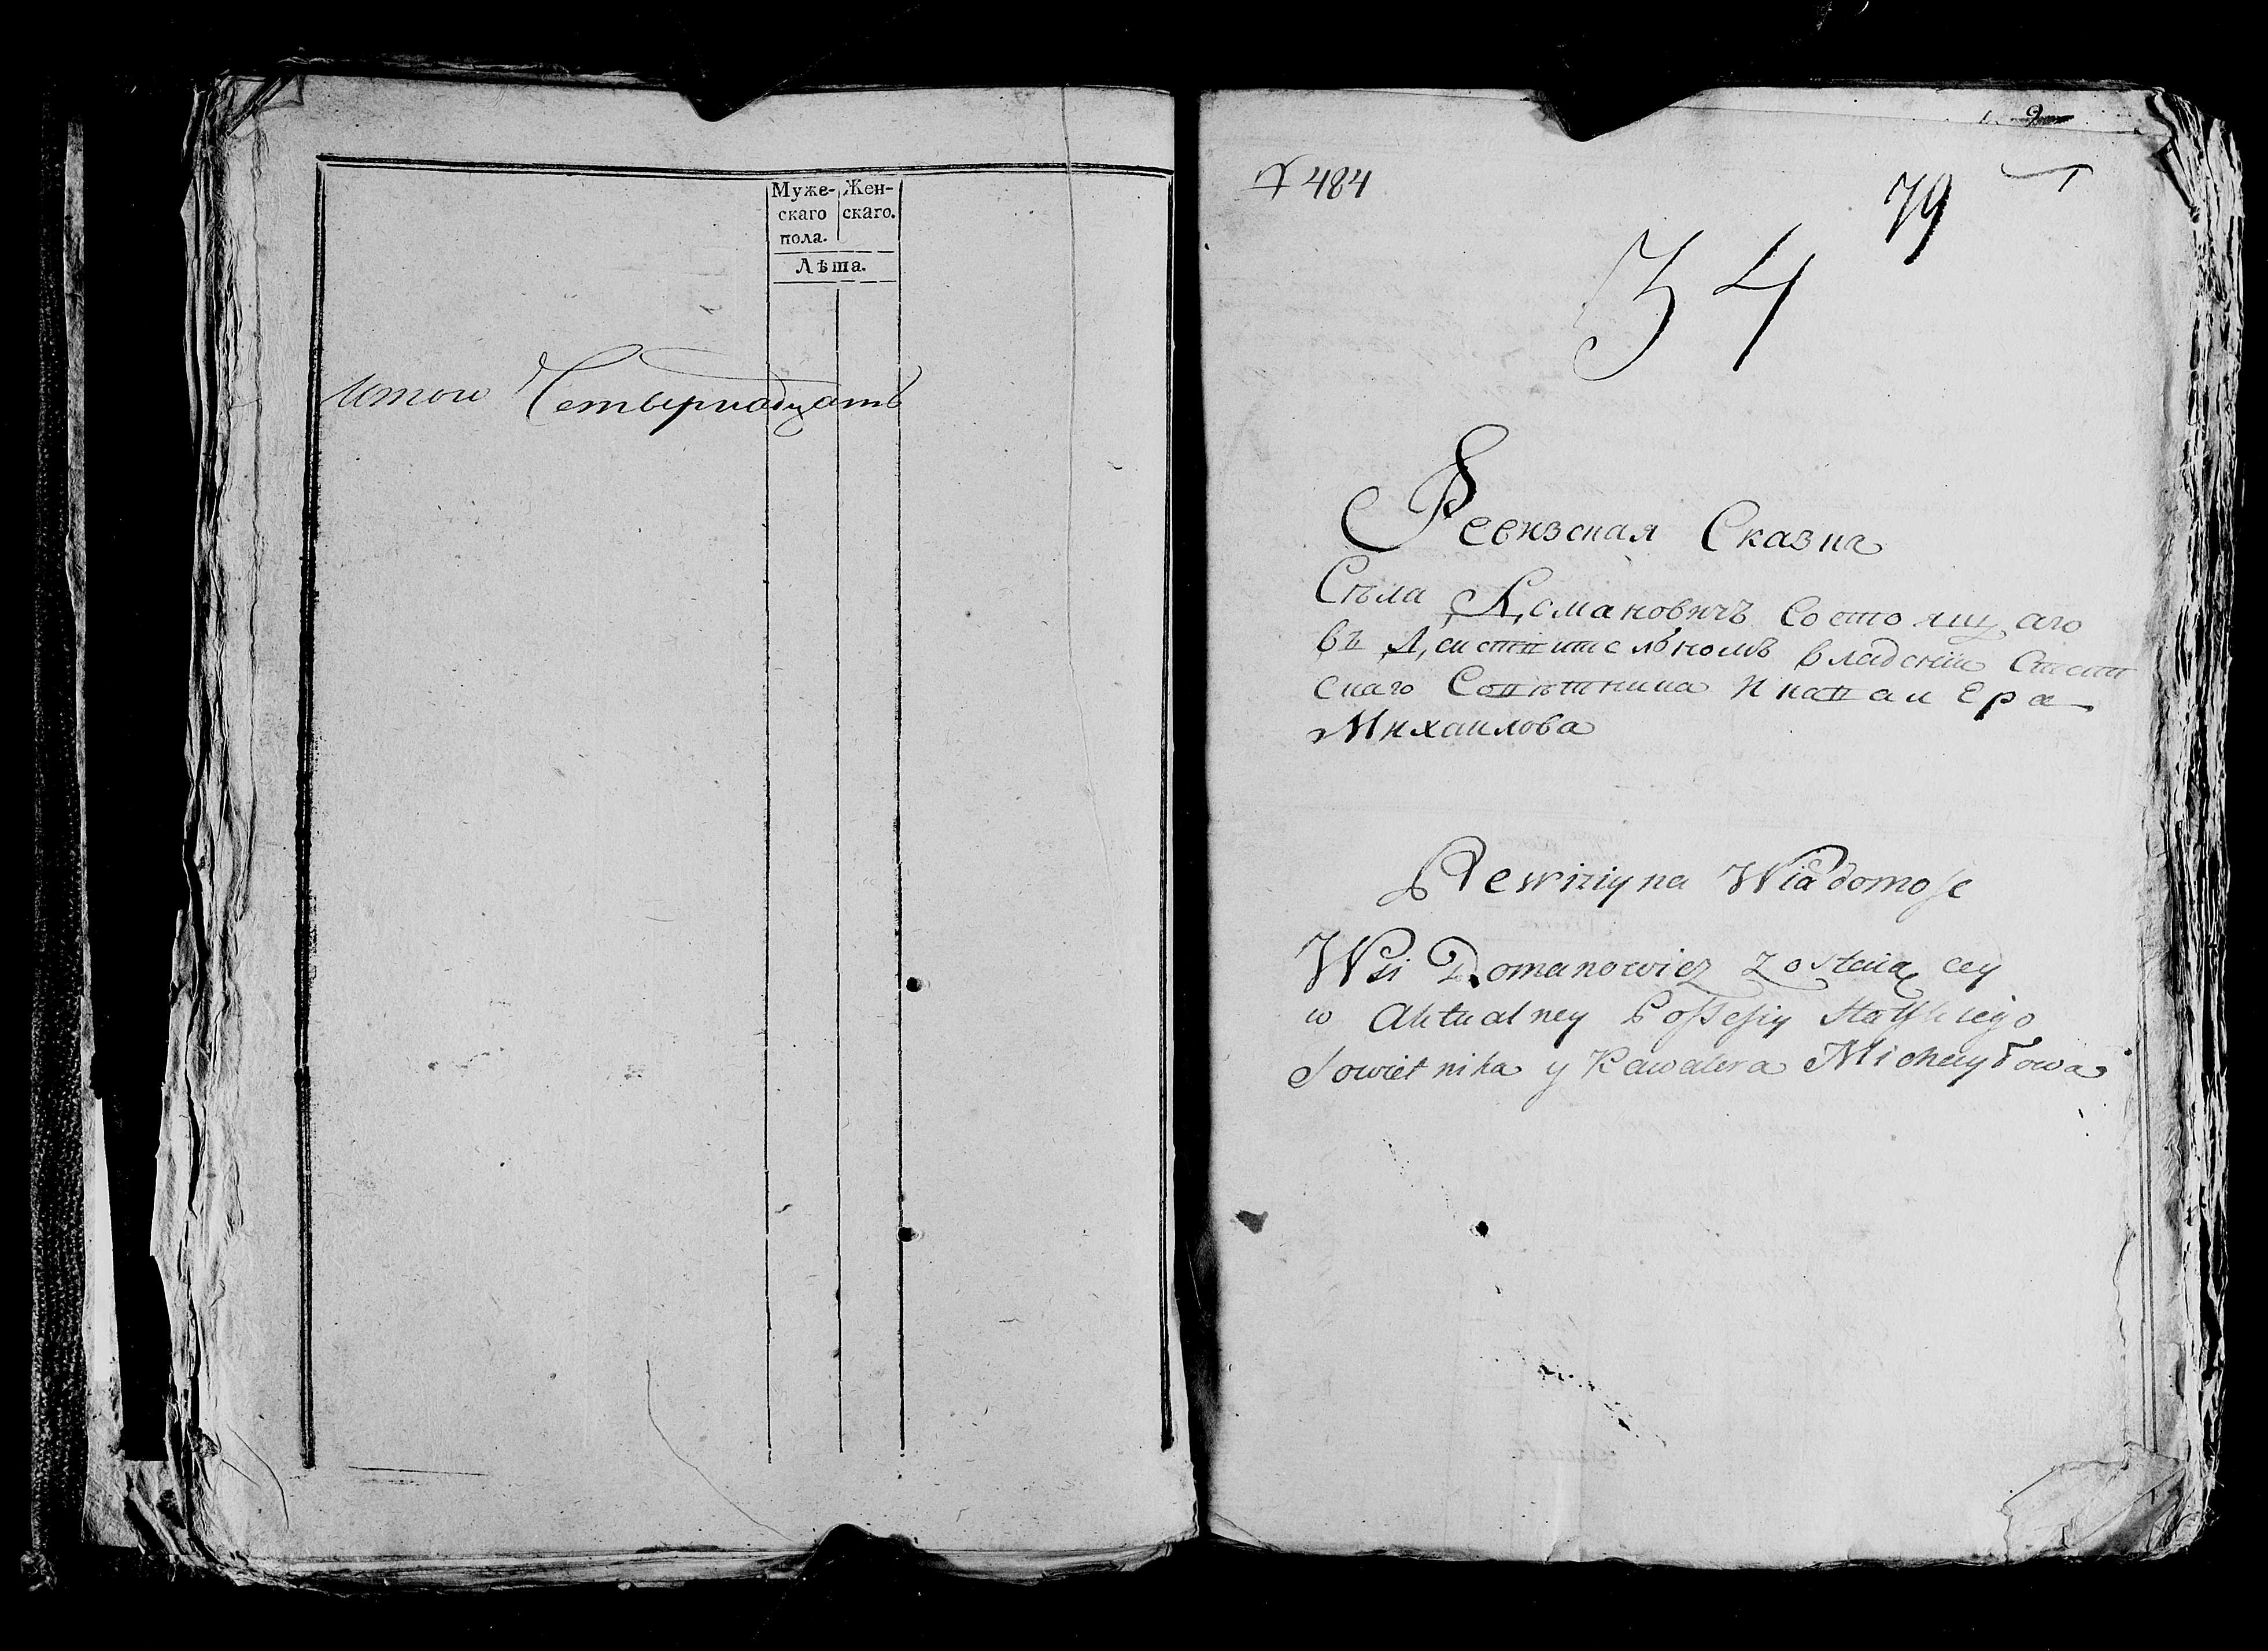 Муже-
скаго
пола.
Жен-
скаго.
Лѣта.
Итого Четырнадцать
484
79
34
Ревизская Сказка
Сѣла Домановичъ Состоящаго
въ Действительномъ владеніи Статт
скаго Советника Икавалера
Михаилова
Rewiziyna Wiadomosc
Wsi Domanowicz Zostaiącey
w Aktualney Possessiy Statskiego
Sowietnika y Kawalera Michayłowa